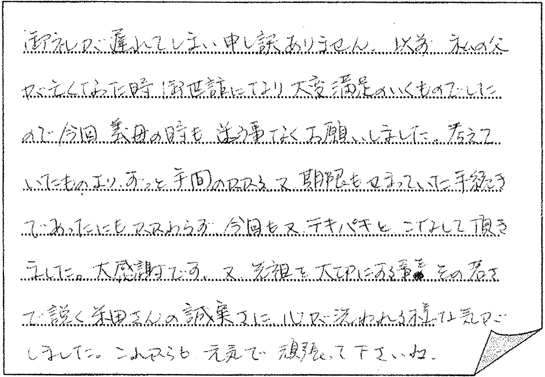 御礼が遅れてしまい申し訳ありません。以前 私の父
が亡くなった時、御世話になり大変満足のいくものでした
ので今回 義母の時も 迷う事なくお願いしました。考えて
いたものより、ずっと手間のかかる又期限もせまっていた手続き
であったにもかかわらず 今回も又 テキパキと こなして頂き
ました。大感謝です。又 先祖を大切にする事を その若さ
で説く 米田さんの誠実さに 心が洗われる様な気が
しました。これからも 元気で 頑張って下さいね。